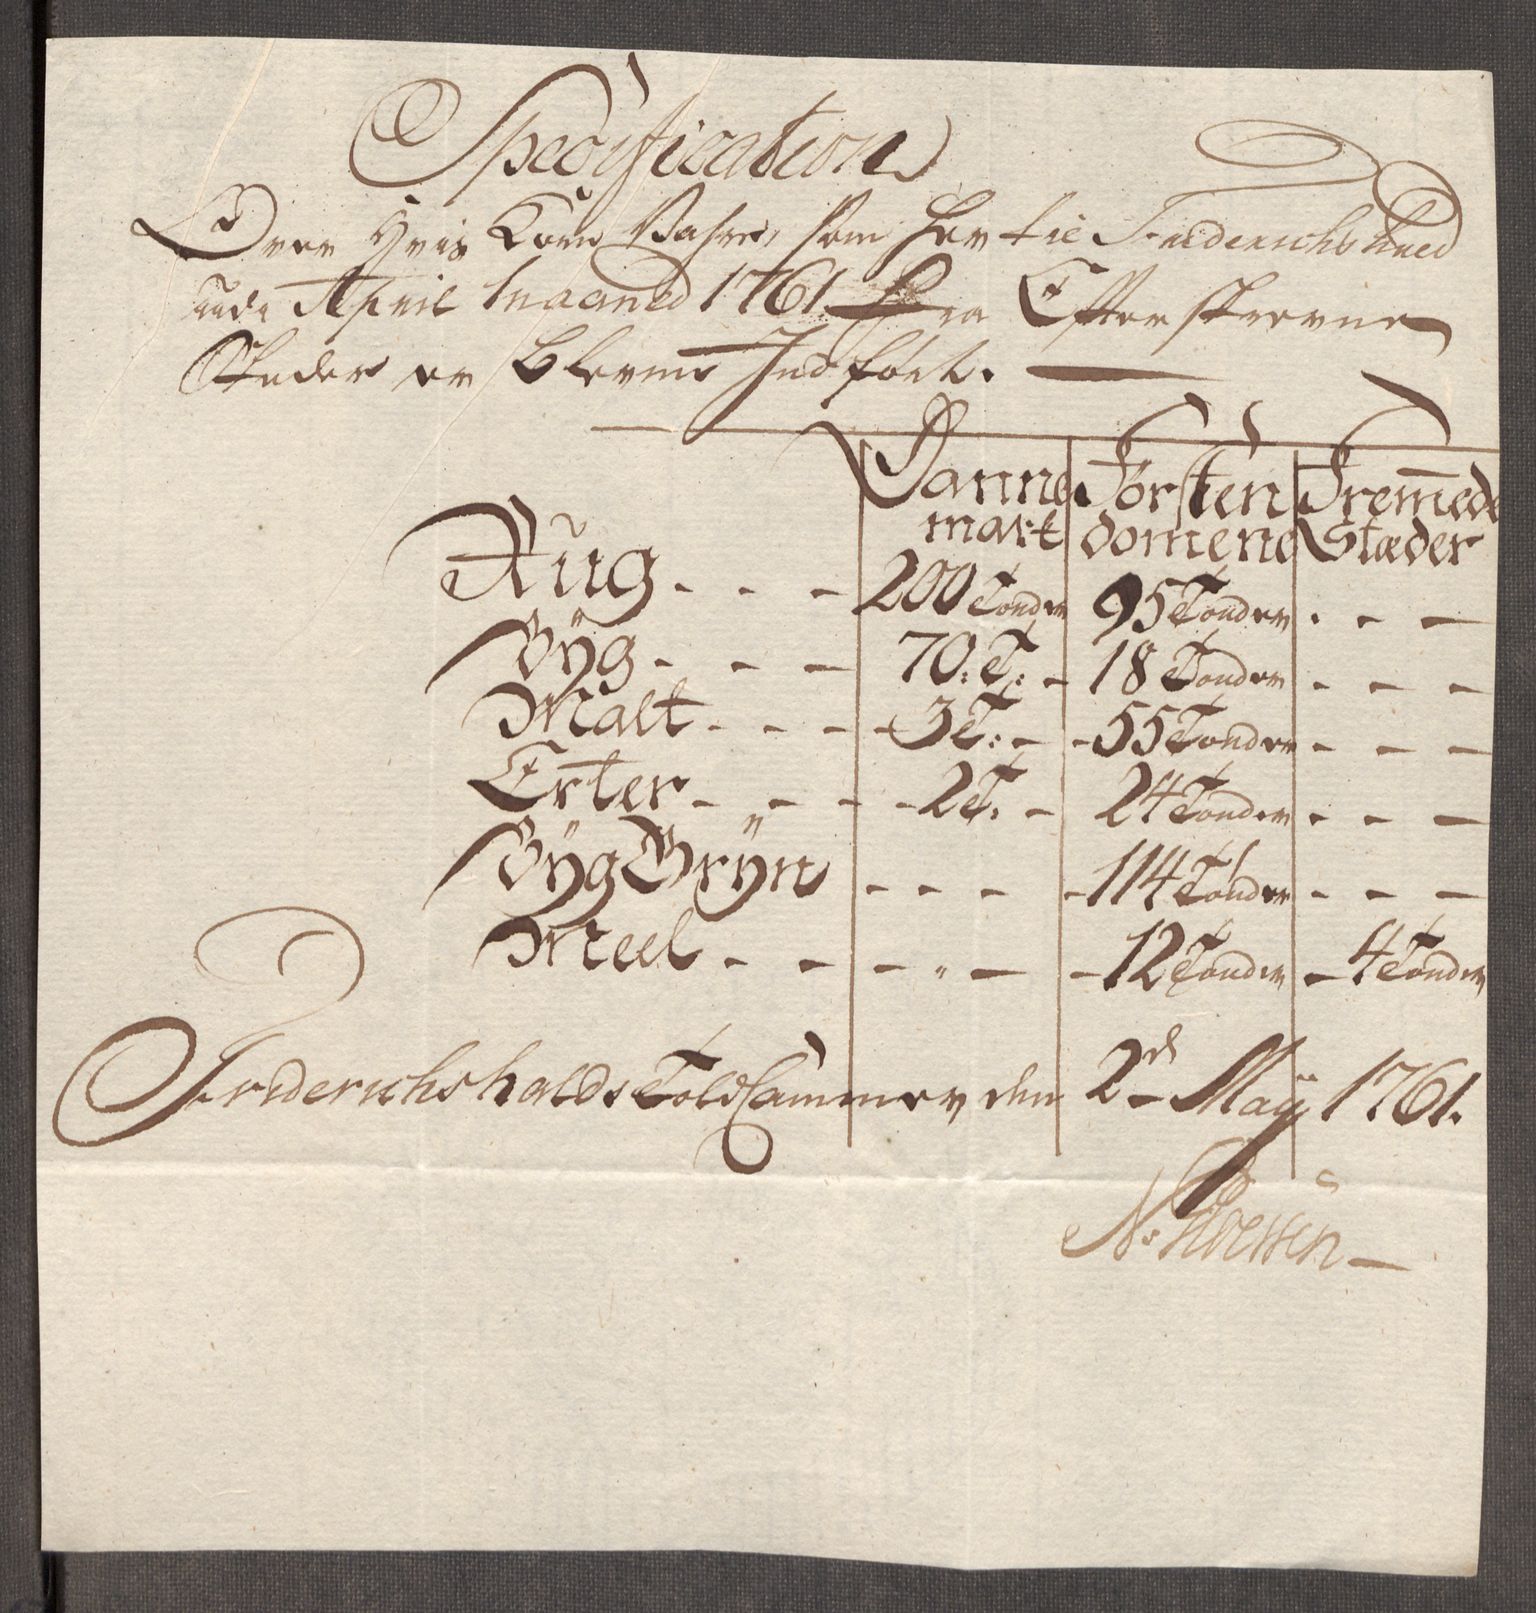 Specification
Over Hvis Korn Vahre, som her til Friderichshald
udi April Maaned 1761 Fra Efterskrevne
Stæder er blevne Indført.
Danne Førsten Fremmede
mark domene Stæder
Rug - - - 200 Tonder 95 Tonder - - -
Byg - - - 70: T: - 18 Tonder - - -
Malt - - - - 3 T: - - 55 Tonder - - -
Erter - - - - 2 T: - 24 Tonder - - -
Byg Gryn - - - - 114 Tonder - - -
Meel - - - " - - 12 Tonder - 4 Tonder
Friderichshalds Told Cammer den 2d May 1761.